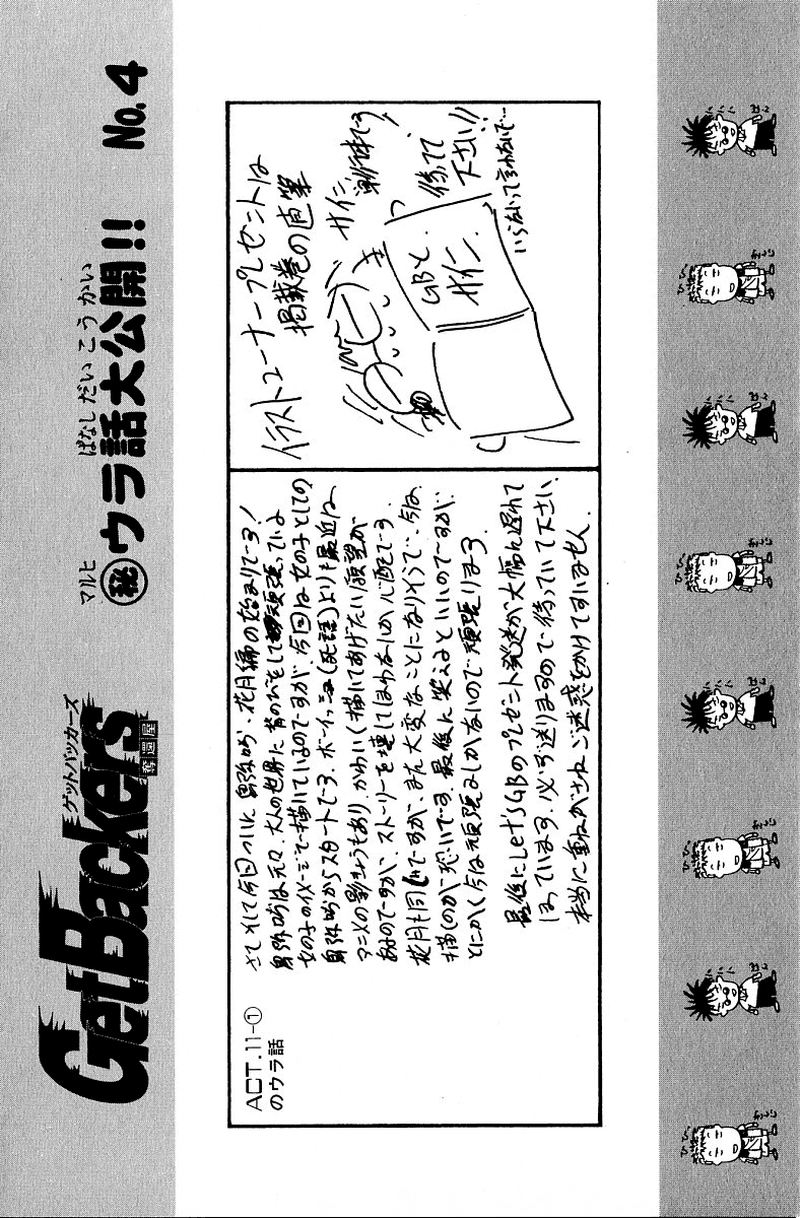 GetBackers
ゲットバッカーズ
奪還屋
マルヒ ぱなし だい こう かい
㊙ウラ話大公開!! No.4
ACT.11-①
のウラ話
さてそして今回ついに卑弥呼・花月編の始まりです!
卑弥呼は元々、大人の世界に背のびして頑張っている
女の子のイメージで描いているのですが、今回は女の子としての
卑弥呼からスタートです。ボーイッシュ(死語)よりも最近は
アニメの影きょうもあり、かわいく描いてあげたい願望が
あるのですが、ストーリーを壊してしまわないか心配です。
花月も同じですが、また大変なことになりそうで、今は、
描くのが恐いです。最後に笑えるといいのですが、
とにかく今は頑張るしかないので頑張ります。
最後にLet'sGBのプレゼント発送が大幅に遅れて
しまっています。必ず送りますので待っていて下さい。
本当に重ねがさねご迷惑をかけてすいません。
イラストコーナープレゼントは
掲載巻の直筆
サイン
単行本です!
GBと
サイン
待ってて
下さい!!
いらないって言わないで…